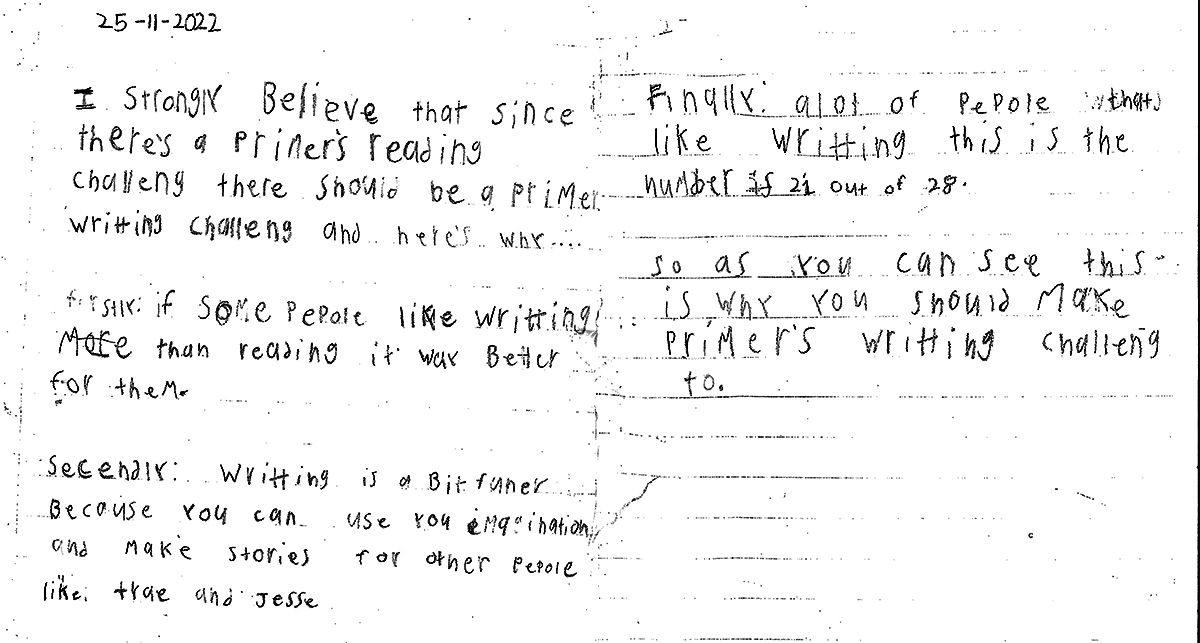 25-11-2022
I strongly Believe that since
there's a Primer's reading
challeng there should be a primer
writting challeng and here's why....
firstly: if some Pepole like writting
More than reading it way Better
for them.
Secendly: writting is a Bit funer
Because you can use you emagination
and make stories for other Pepole
like: trae and Jesse
Finally: alot of Pepole thats
like writting this is the
number is 21 out of 28.
so as you can see this
is why you should make
Primer's writting challeng
to.